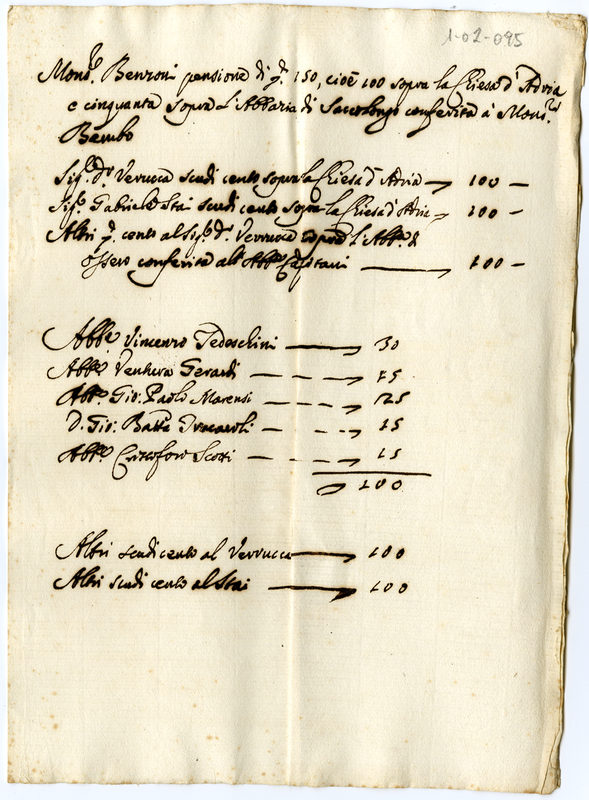 1-02-095
Mons.r Benzoni pensione di 150, cioè 100 sopra la Chiesa d'Adria
e cinquanta sopra l'Abbazia di Saccolongo conferita à Mons.r
Bembo
Sig.r D.r Verucca scudi cento sopra la Chiesa d'Adria 100 –
Sig.r Gabriele Stai scudi cento sopra la Chiesa d'Adria 100 –
Altri cento al Sig.r D.r Verrucca sopra l'Abb.a di
Ossero conferita all'Abb.e Capitani 100 –
Abbe Vincenzo Tedeschini — 30
Abb.e Ventura Gerardi — 15
Abb.e Gio: Paolo Marensi — 25
D. Gio: Batta — 15
Abb.e Cristoforo Scotti — 15
100
Altri scudi cento al Verrucca — 100
Altri scudi cento al Stai — 100